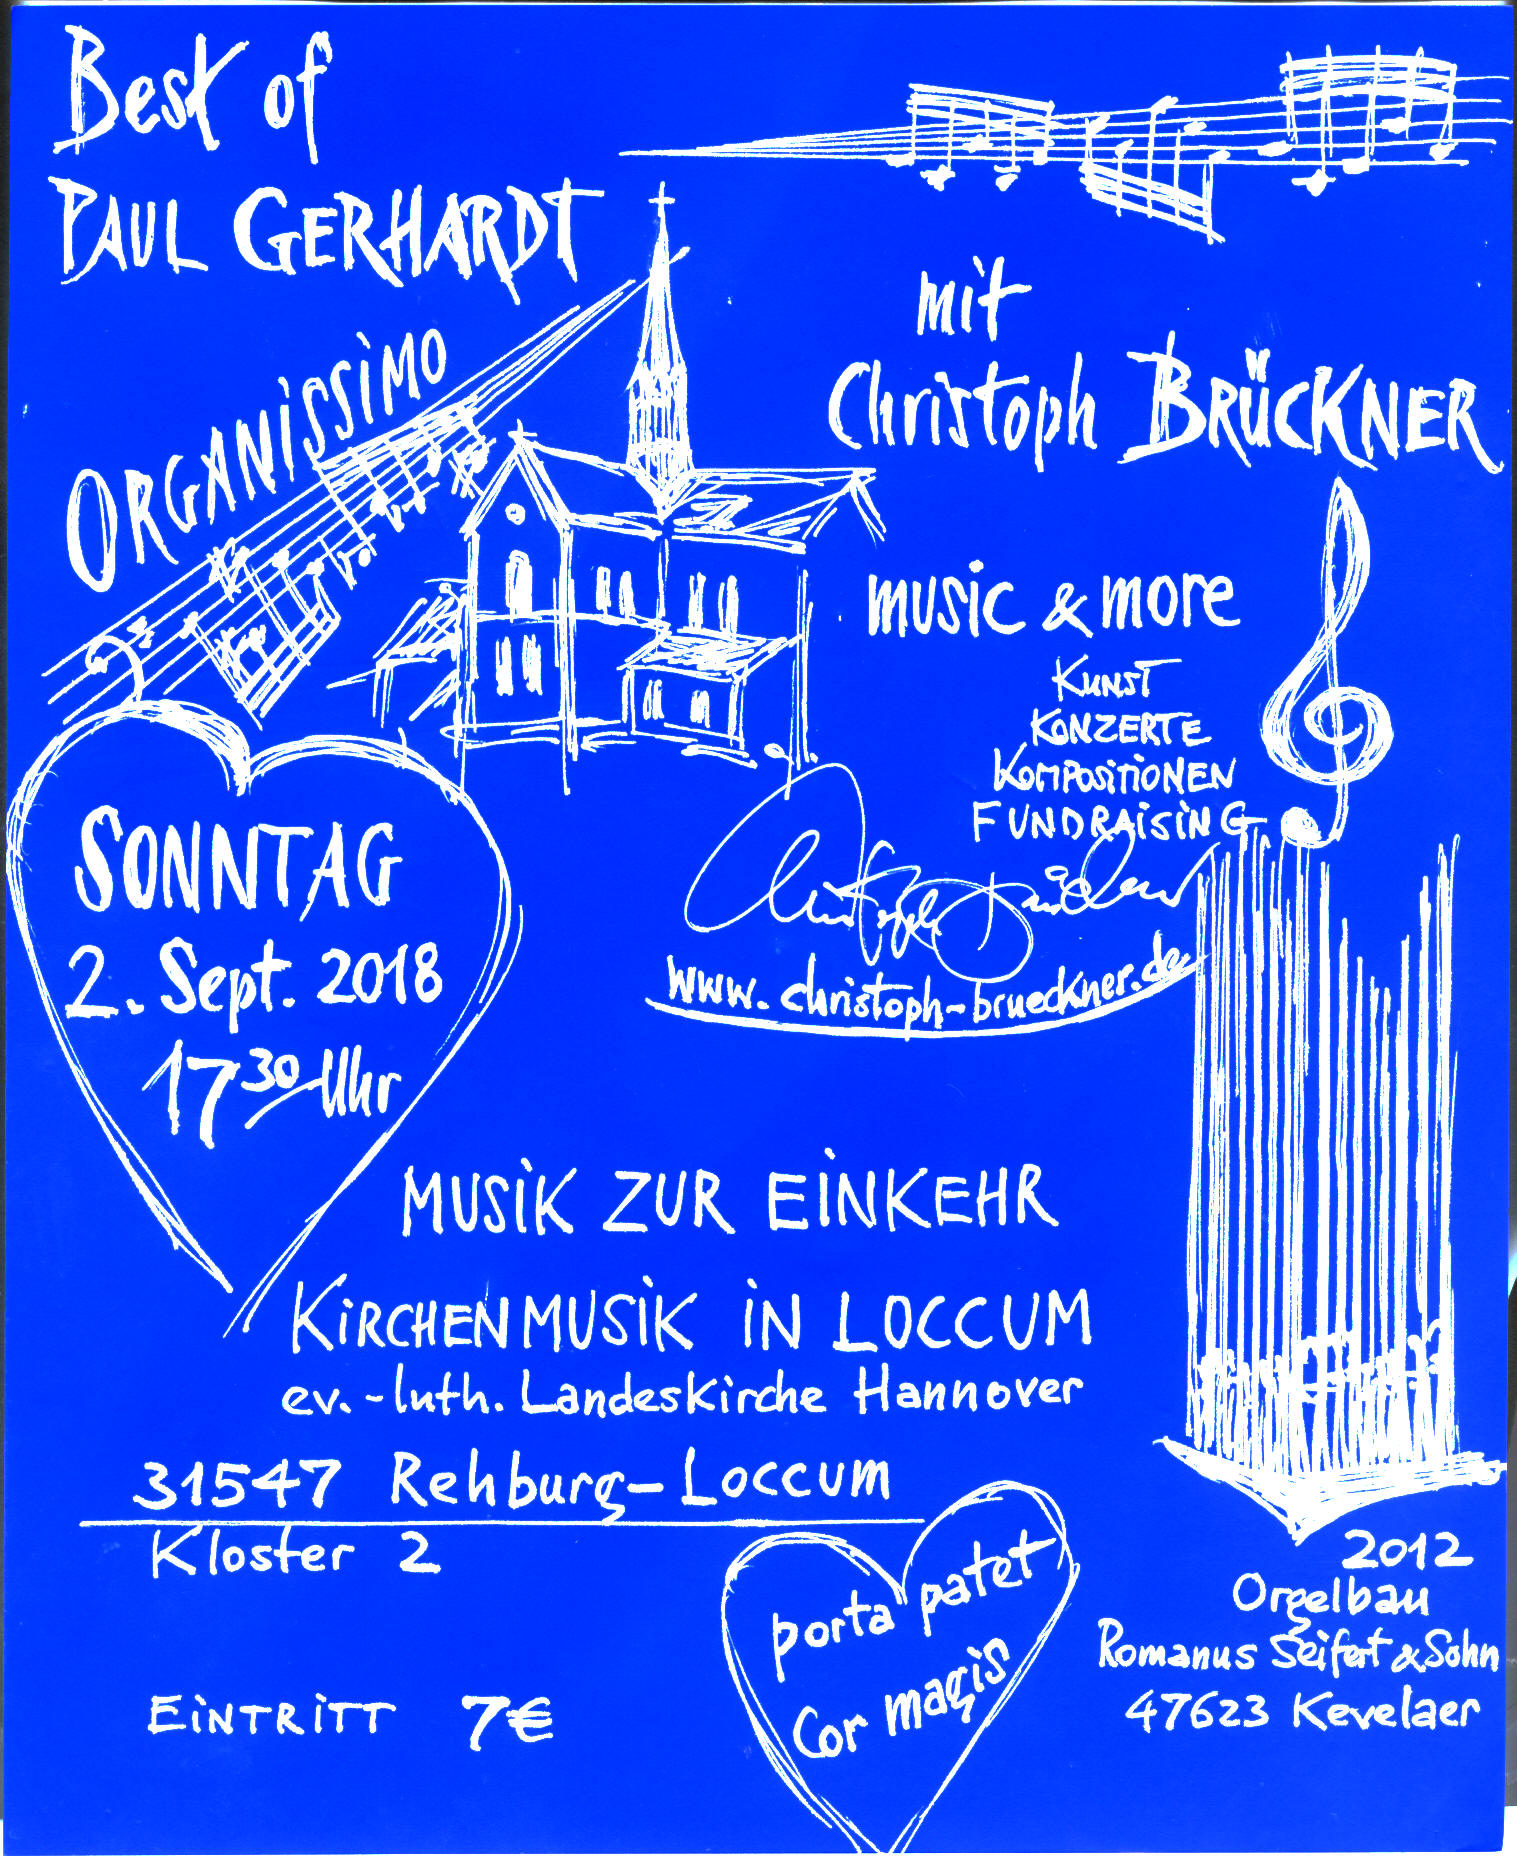 Best of
PAUL GERHARDT
ORGANISSIMO
mit
Christoph BRÜCKNER
music & more
KUNST
KONZERTE
KOMPOSITIONEN
FUNDRAISING
www.christoph-brueckner.de
SONNTAG
2. Sept. 2018
17 30 Uhr
MUSIK ZUR EINKEHR
KIRCHENMUSIK IN LOCCUM
ev.-luth. Landeskirche Hannover
31547 Rehburg-Loccum
Kloster 2
EINTRITT 7€
porta patet
Cor magis
2012
Orgelbau
Romanus Seifert & Sohn
47623 Kevelaer